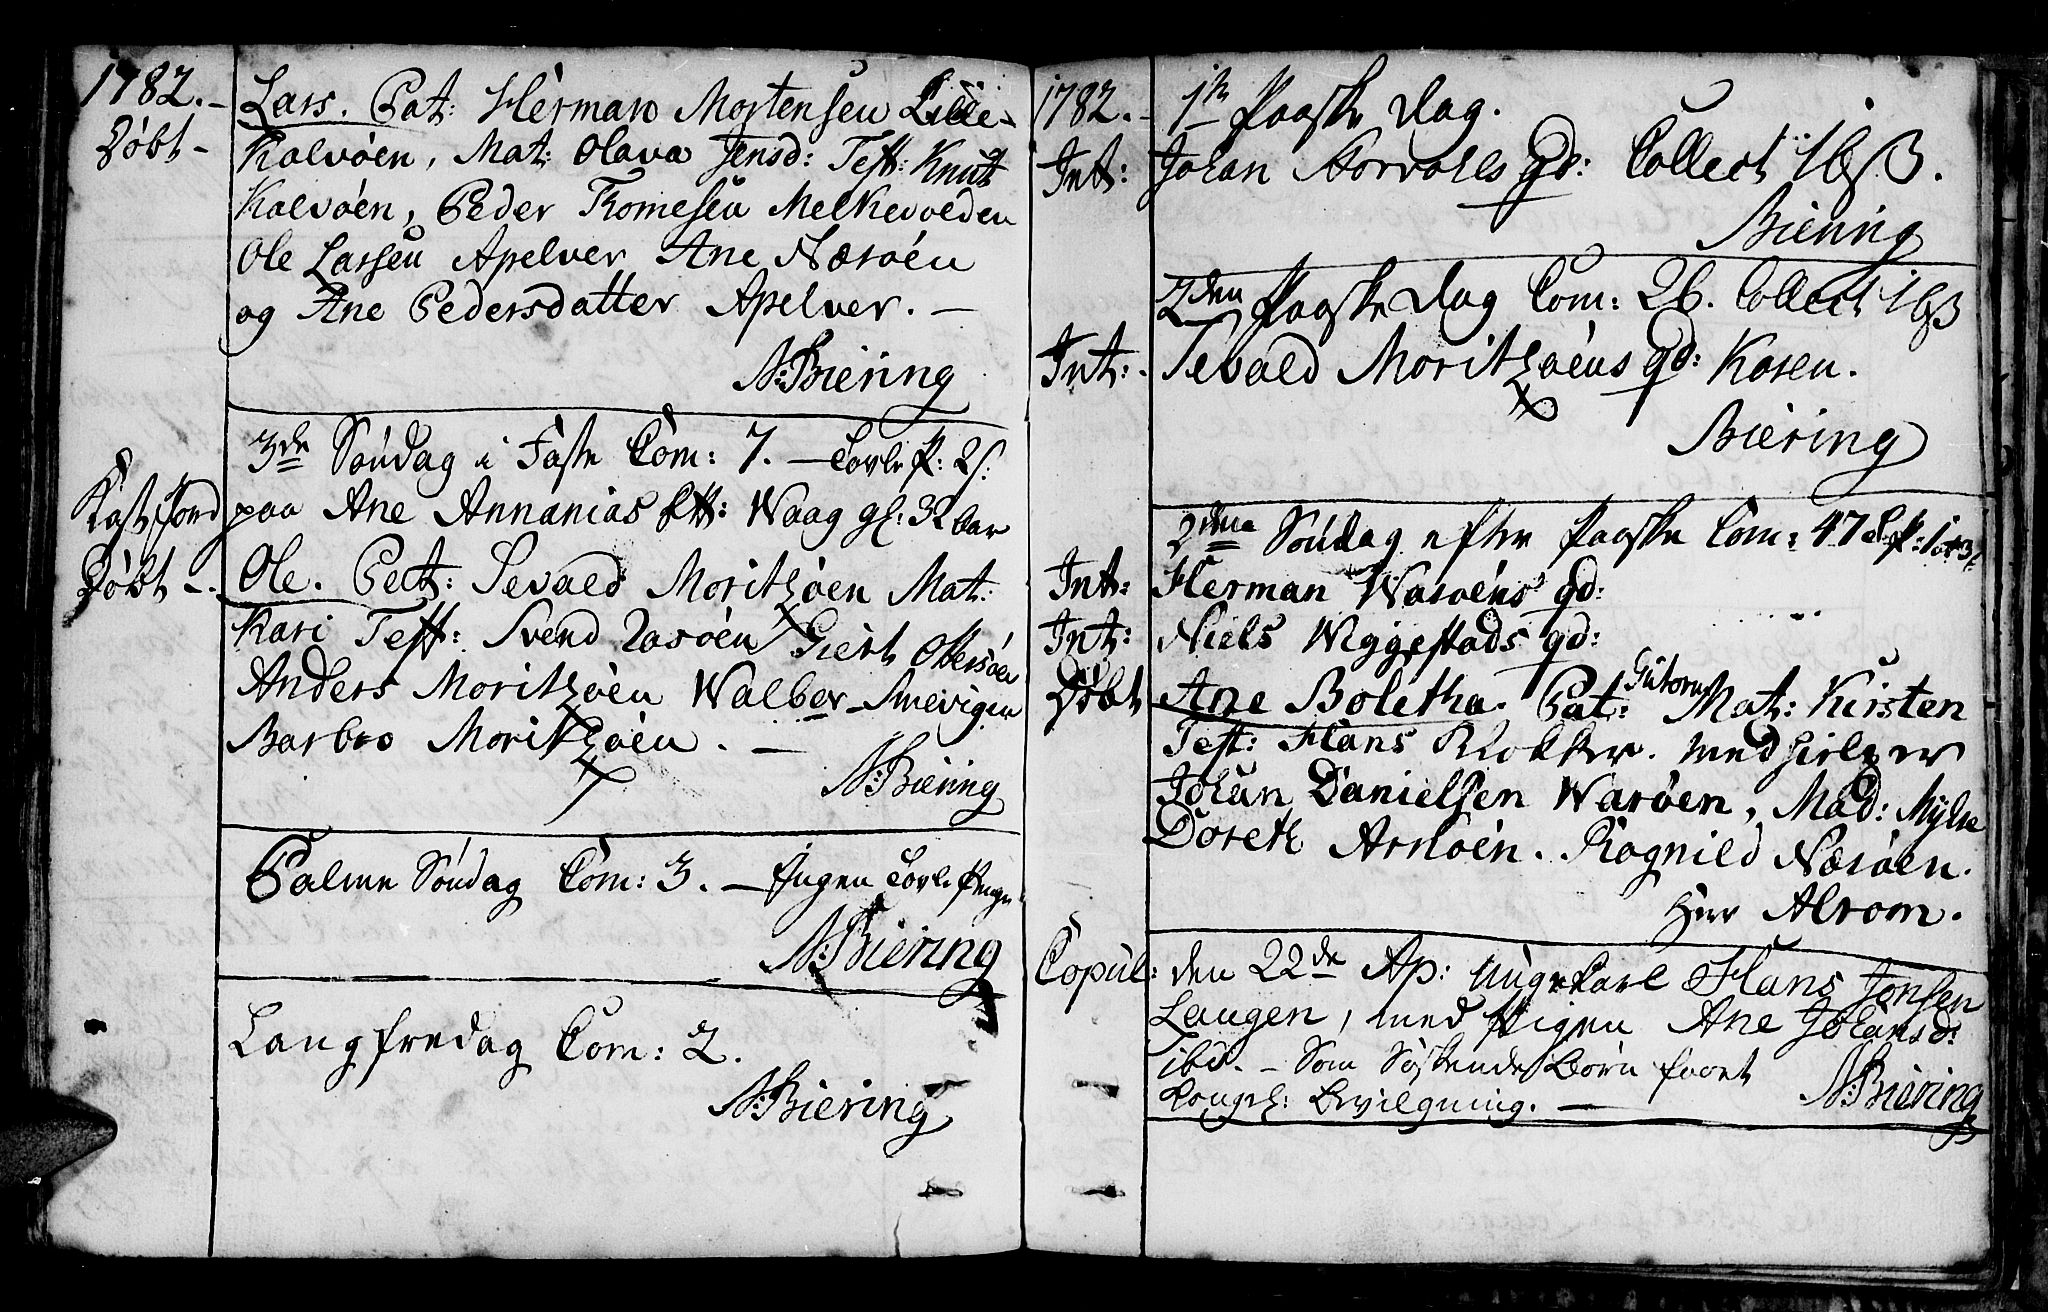 1782.-
Døbt-
Lars. Pat: Herman Mortensen Lille-
Kalvøen, Mat: Olava Jensd: Test: Knut
Kalvøen, Peder Thomesen Melkevolden
Ole Larsen Apelver Ane Nærøen
og Ane Pedersdatter Apelver. -
N: Biering
3de Søndag i Faste Com: 7. -
Kastfjord
paa Ane Annanias Waag gl: 32 Aar
Døbt -
Ole. Pat: Sevald Moritzøen Mat:
Kari Test: Svend Giert
Anders Moritzøen Walber Smevigen
Barbro Moritzøen. -
N: Biering
Palme Søndag Com: 3. - Ingen Tavle Penge
N: Biering
Langfredag Com: 2.
N: Biering
1782.-
1ste Paaske Dag.
Int: Johan gd: Collect
Biering
2den Paaske Dag Com: 26. Collect
Int: Sevald Moritzøens gd: Kosen.
Biering
2den Søndag efter Paaske Com: 47
Int: Herman Warøens gd:
Int: Niels Wiggestads gd:
Døbt Ane Boletha. Pat: Gutorm Mat: Kirsten
Test: Hans Klokker. Medhielper
Johan Danielsen Warøen, Mad: Mylse
Doreth Arnøen. Ragnild Nærøen.
Herr Alrom.
Copul: den 22de Ap: Ungekarl Hans Jonsen
Laugen, med Pigen Ane Johansd:
ibd. - Som Søskende Børn faaet
Kongel: Bevilgning. -
N: Biering